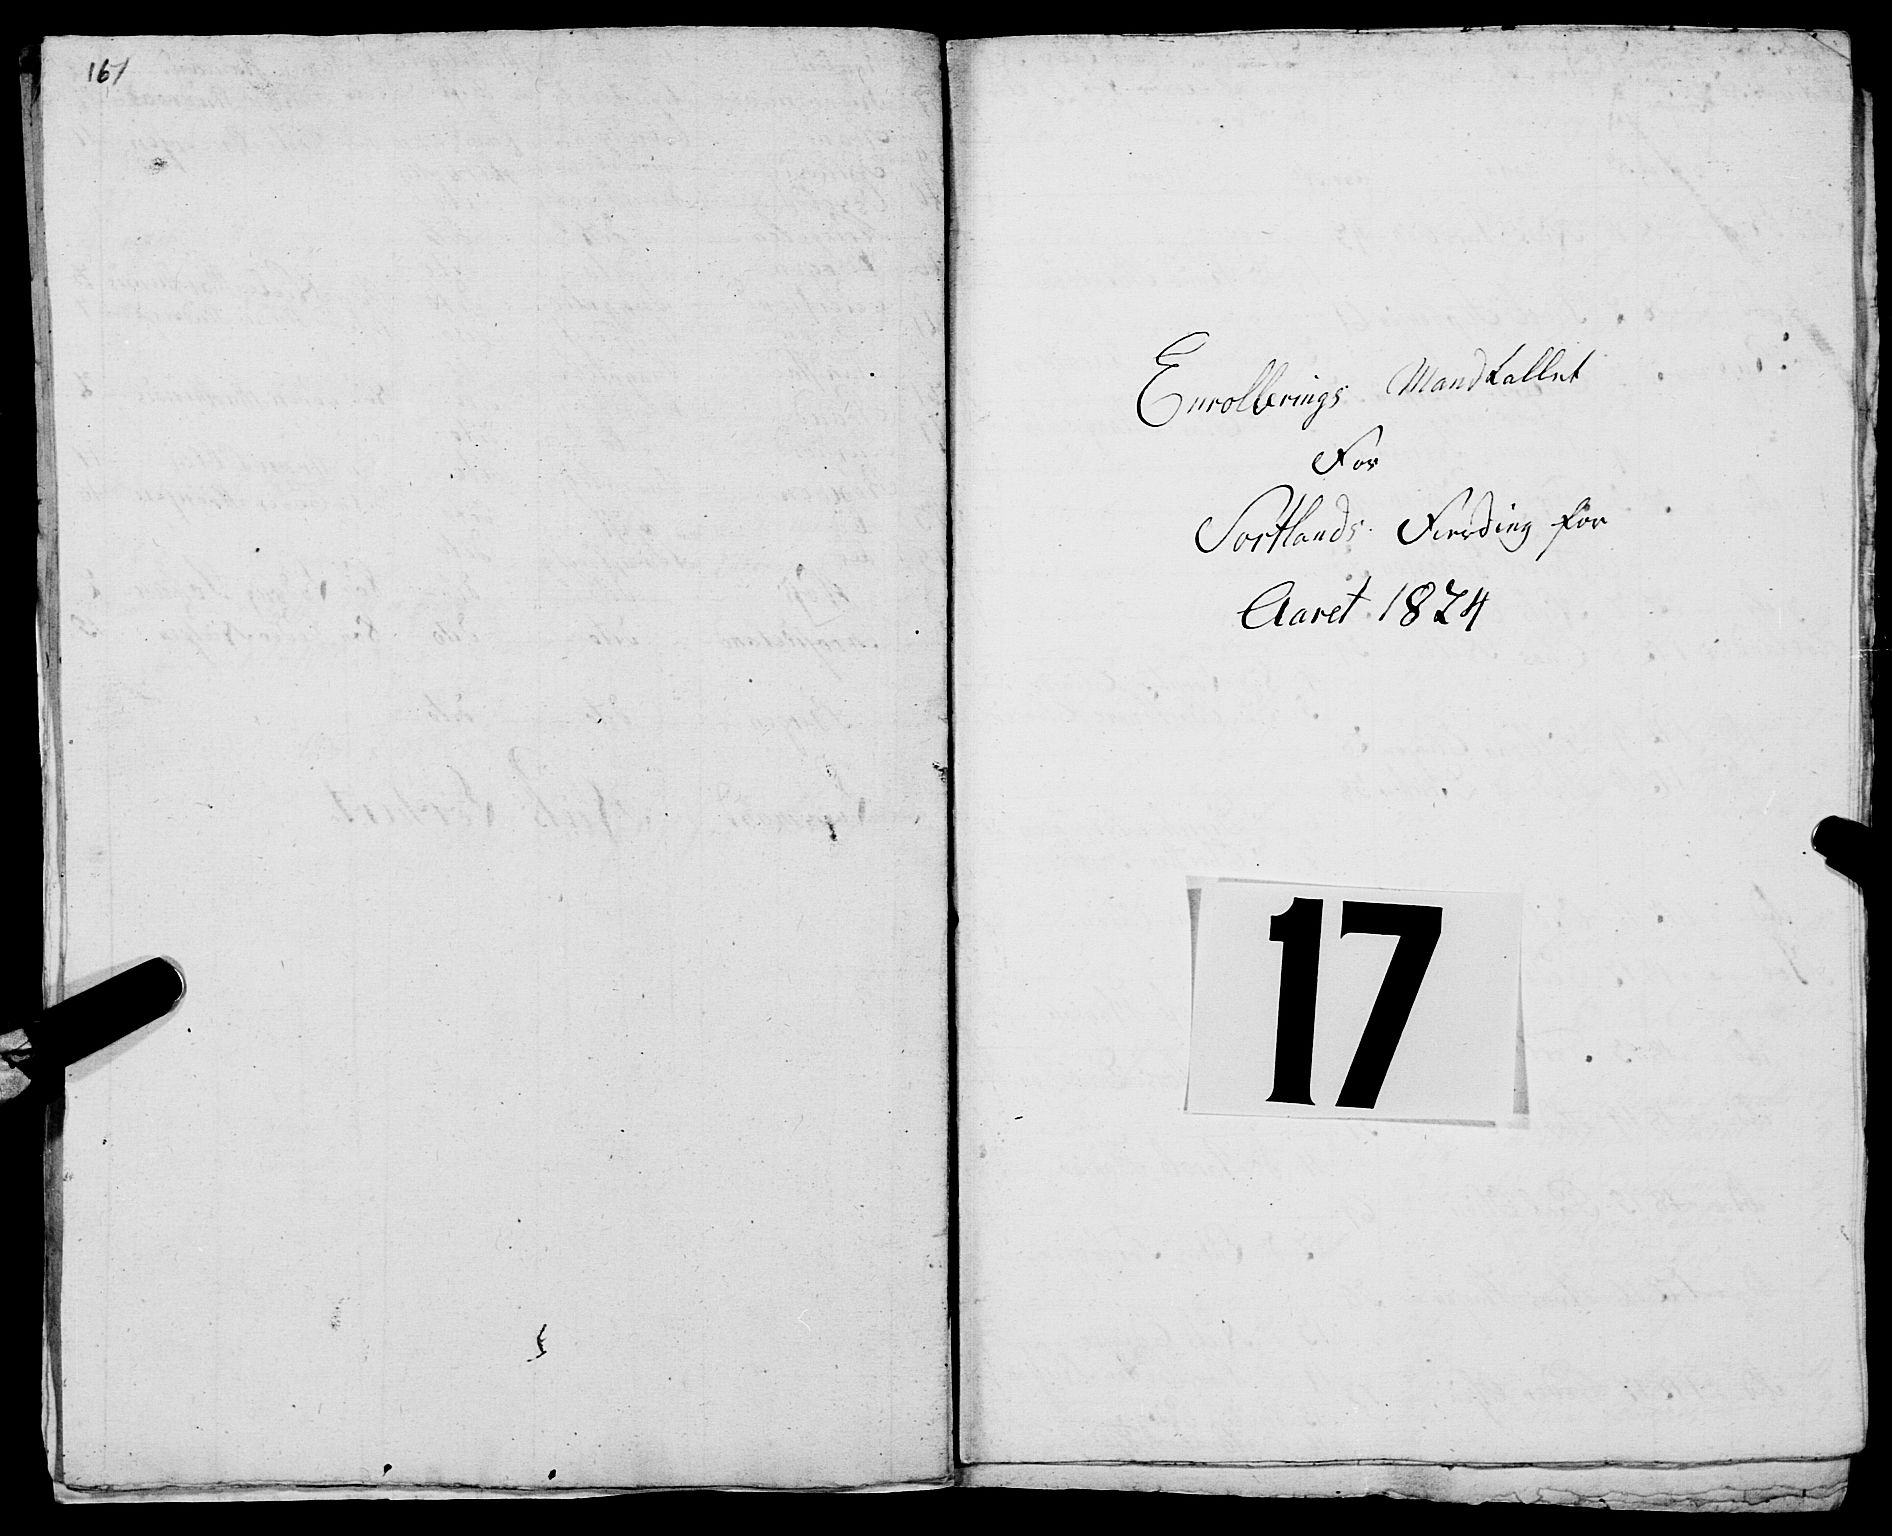 161
Enrollerings Mandtallet
For
Sortlands Fierding for
Aaret 1824
17